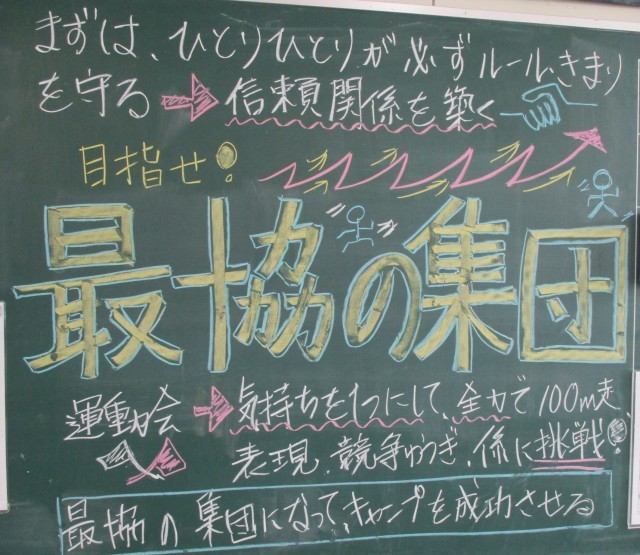 まずは、ひとりひとりが必ずルール、きまり
を守る → 信頼関係を築く
目指せ!
最協の集団
運動会 → 気持ちを1つにして、全力で100m走、
表現、競争ゆうぎ、係に挑戦!
最協の集団になって、キャンプを成功させる